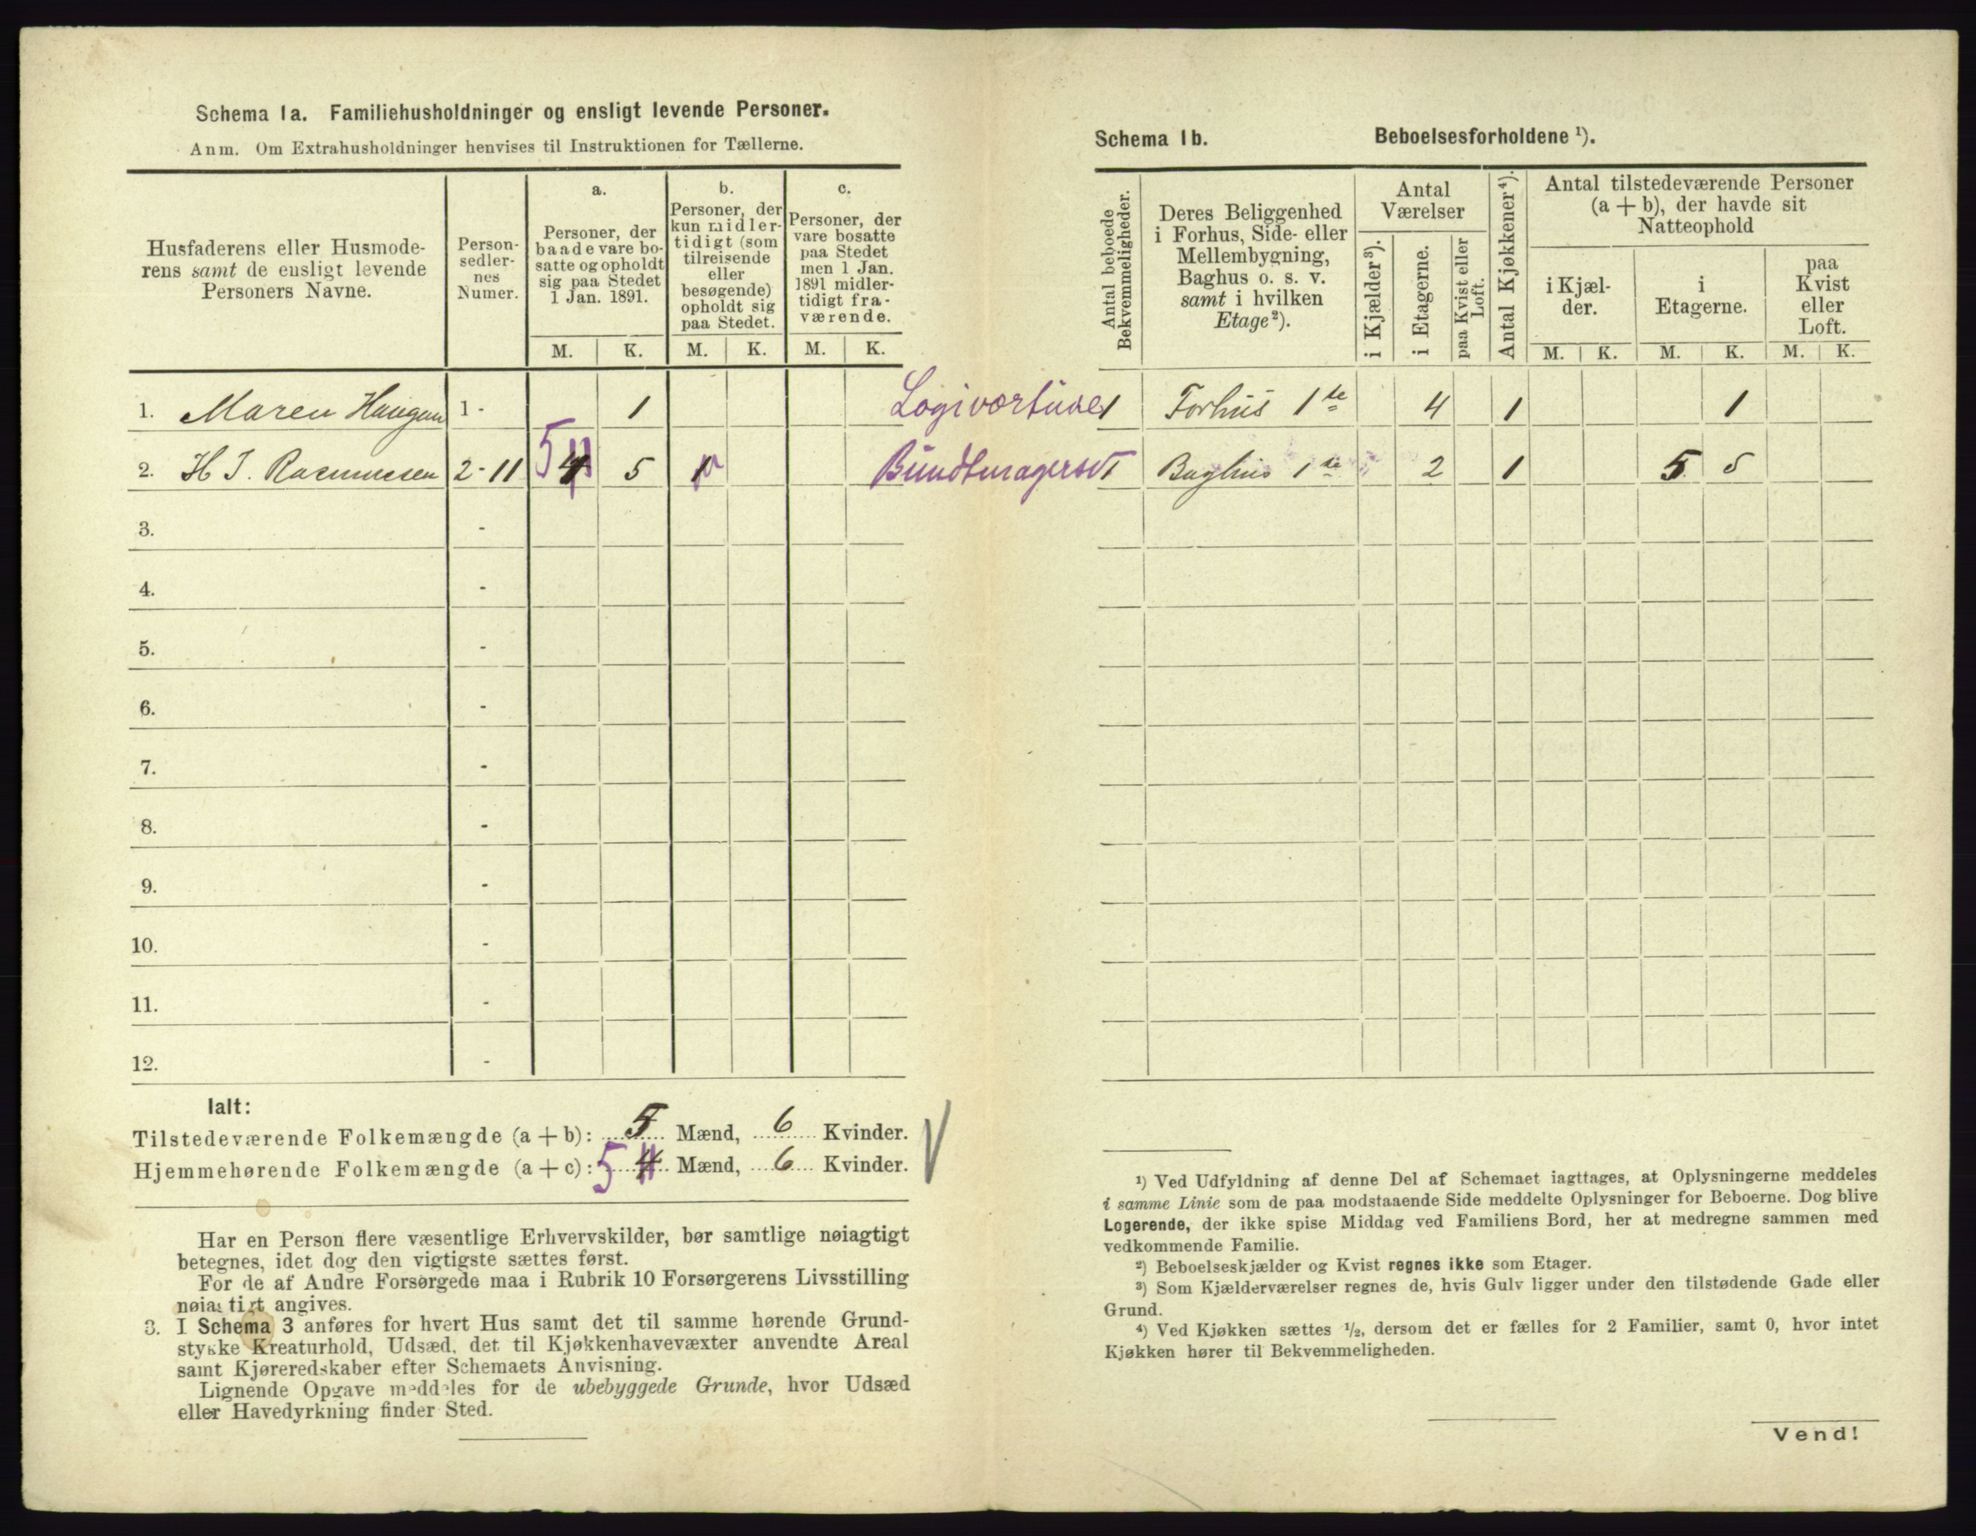 Schema 1a. Familiehusholdninger og ensligt levende Personer.
Anm. Om Extrahusholdninger henvises til Instruktionen for Tællerne.
Husfaderens eller Husmode-
rens samt de ensligt levende
Personers Navne.
Person-
sedler-
nes
Numer.
a.
Personer, der
baade vare bo-
satte og opholdt
sig paa Stedet
1 Jan. 1891.
b.
Personer, der
kun midler-
tidigt (som
tilreisende
eller
besøgende)
opholdt sig
paa Stedet.
c.
Personer, der
vare bosatte
paa Stedet
men 1 Jan.
1891 midler-
tidigt fra-
værende.
M. K. M. K. M. K.
1. Maren Haugan 1 - 1
2. H J. Rasmussen 2-11 5 4 5 1
3. -
4. -
5. -
6. -
7. -
8. -
9. -
10. -
11. -
12. -
Ialt:
Tilstedeværende Folkemængde (a + b): 5 Mænd, 6 Kvinder.
Hjemmehørende Folkemængde (a + c): 5 4 Mænd, 6 Kvinder.
Har en Person flere væsentlige Erhvervskilder, bør samtlige nøiagtigt
betegnes, idet dog den vigtigste sættes først.
For de af Andre Forsørgede maa i Rubrik 10 Forsørgerens Livsstilling
nøiagtigt angives.
3. I Schema 3 anføres for hvert Hus samt det til samme hørende Grund-
stykke Kreaturhold, Udsæd, det til Kjøkkenhavevæxter anvendte Areal
samt Kjøreredskaber efter Schemaets Anvisning.
Lignende Opgave meddeles for de ubebyggede Grunde, hvor Udsæd
eller Havedyrkning finder Sted.
Schema 1b. Beboelsesforholdene ¹).
Antal beboede
Bekvemmeligheder.
Deres Beliggenhed
i Forhus, Side- eller
Mellembygning,
Baghus o. s. v.
samt i hvilken
Etage²).
Antal
Værelser
i Kjælder³).
i Etagerne.
paa Kvist eller
Loft.
Antal Kjøkkener⁴).
Antal tilstedeværende Personer
(a + b), der havde sit
Natteophold
i Kjæl-
der.
i
Etagerne.
paa
Kvist
eller
Loft.
M. K. M. K. M. K.
1 Forhus 1te 4 1 1
1 Baghus 1te 2 1 5 5
¹) Ved Udfyldning af denne Del af Schemaet iagttages, at Oplysningerne meddeles
i samme Linie som de paa modstaaende Side meddelte Oplysninger for Beboerne. Dog blive
Logerende, der ikke spise Middag ved Familiens Bord, her at medregne sammen med
vedkommende Familie.
²) Beboelseskjælder og Kvist regnes ikke som Etager.
³) Som Kjælderværelser regnes de, hvis Gulv ligger under den tilstødende Gade eller
Grund.
⁴) Ved Kjøkken sættes ½, dersom det er fælles for 2 Familier, samt 0, hvor intet
Kjøkken hører til Bekvemmeligheden.
Vend!